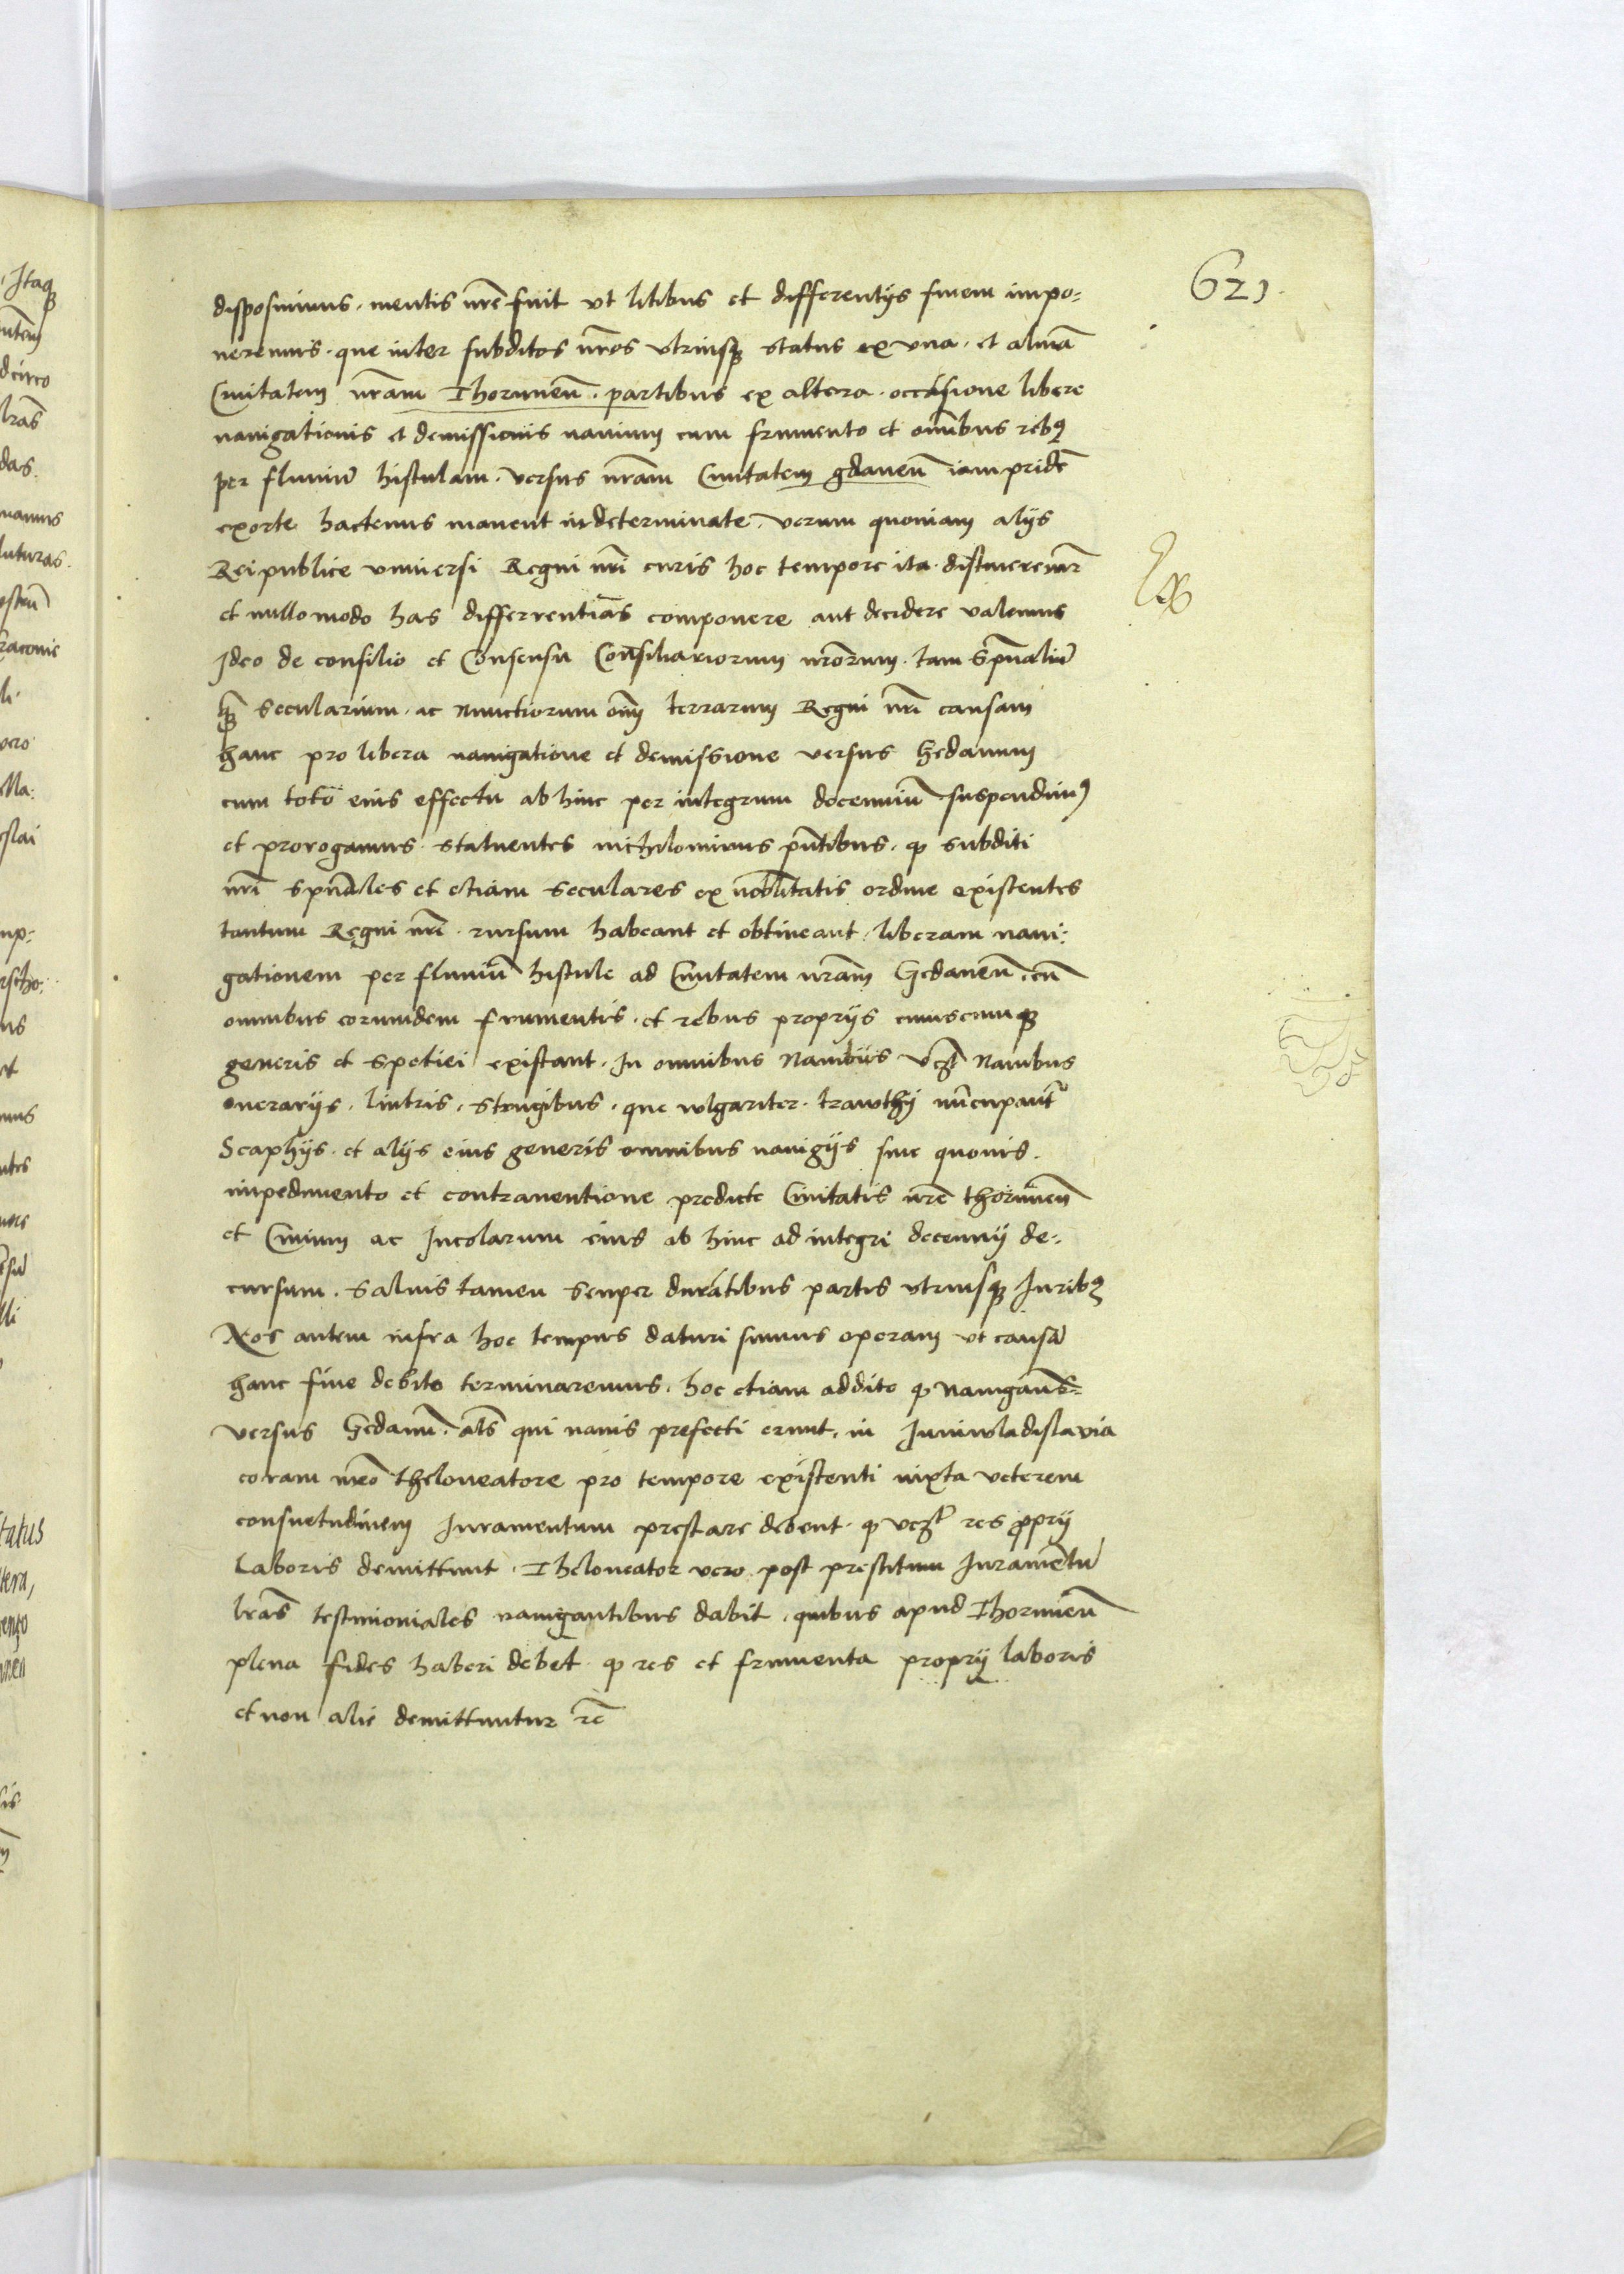 621.
disposuimus. mentis nrē fuit vt litibus et differentijs finem impo-
neremus. que inter subditos nr̄os vtriusq3 status ex vna. et aliam̄
Ciuitatem nr̄am Thorunen̄. partibus ex altera. occasione libere
nauigationis et demissionis nauium cum frumento et om̄ibus rebꝰ
per fluuiū histulam. versus nr̄am Ciuitatem gdanen̄ iam pridē
exorte hactenus manent indeterminate. verum quoniam alijs
Reipublice vniuersi Regni nr̄i curis hoc tempore ita distineremr̄
et nullo modo has differrentias componere aut decidere valemus
Ideo de consilio et Consensu Consiliariorum nr̄orum. tam Sp̄ualiū
q̄3 secularium. ac Nunctiorum om̄i terrarum Regni nr̄i causam
hanc pro libera nauigatione et demissione versus Gedanum
cum toto eius effectu ab hinc per integrum decenniū suspendimꝰ
et prorogamus. statuentes nichilominus pn̄tibus. ꝙ subditi
nr̄i sp̄uales et etiam seculares ex nobilitatis ordine existentes
tantum Regni nr̄i. rursum habeant et obtineant. liberam naui-
gationem per fluuiū histule ad Ciuitatem nr̄am Gedanen̄. cū
omnibus eorumdem frumentis. et rebus proprijs cuiuscumq3
generis et spetiei existant. In omnibus Nauibus vcz̄ Nauibus
onerarijs. lintris. strugibus. que wlgariter. trawthy nūcupant̄
Scaphijs. et alijs eius generis omnibus nauigijs sine quouis.
impedimento et contrauentione predicte Ciuitatis nr̄e thorunen̄
et Ciuium ac Incolarum eius ab hinc ad integri decennij de-
cursum. Saluis tamen semper durātibus partis vtriusq3 Iuribꝰ
Nos autem infra hoc tempus daturi sumus operam vt causā
hanc fine debito terminaremus. hoc etiam addito ꝙ nauigan̄s-
versus Gedanū. al̄s qui nauis prefecti erunt. in Juniwladislauia
coram nr̄o theloneatore pro tempore existenti iuxta veterem
consuetudinem Iuramentum prestare debent. ꝙ vcz̄ res p̄prij
Laboris demittunt. Theloneator vero post prestitum Iuramētū
lr̄as testimoniales nauigantibus dabit. quibus apud Thorunen̄
plena fides haberi debet ꝙ res et frumenta proprij laboris
et non alie demittuntur rc̄